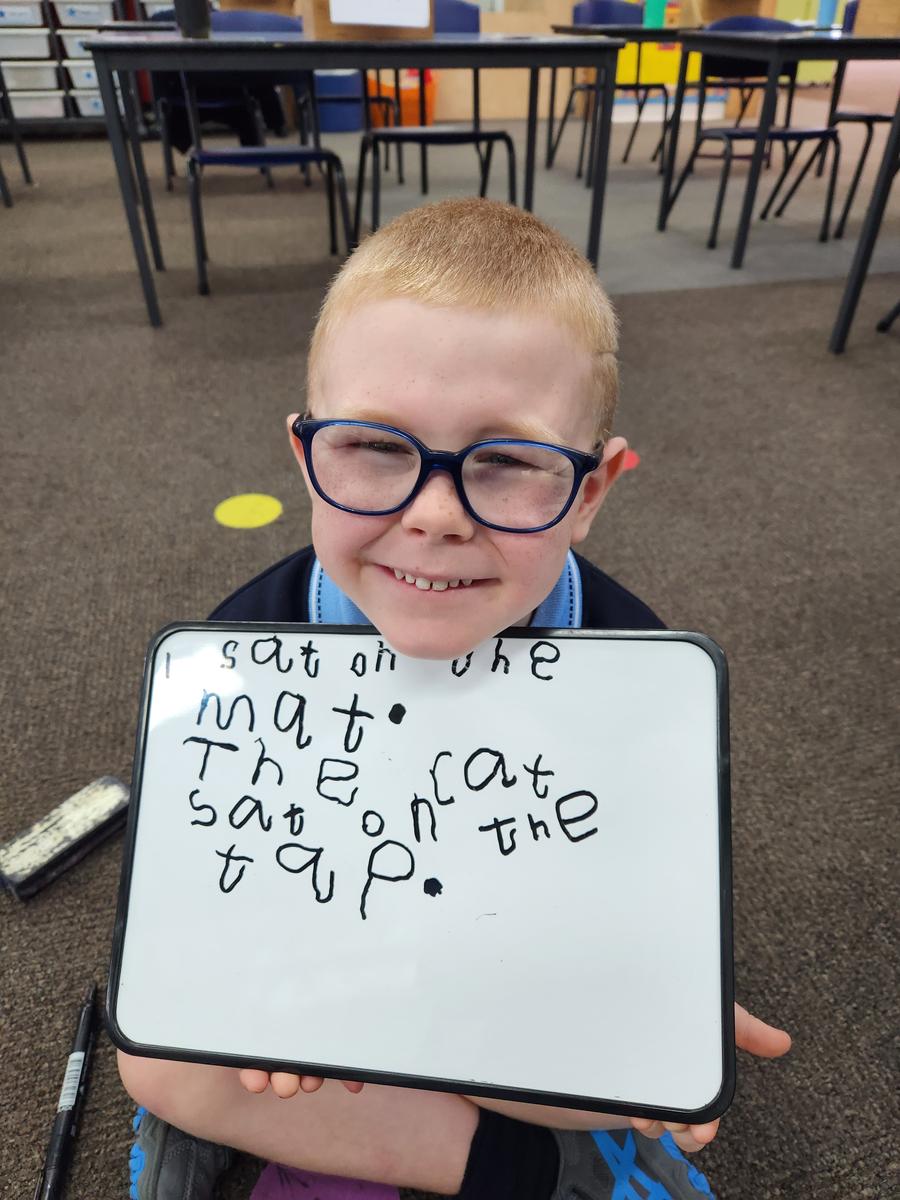 I sat on the
mat.
The cat
sat on the
tap.